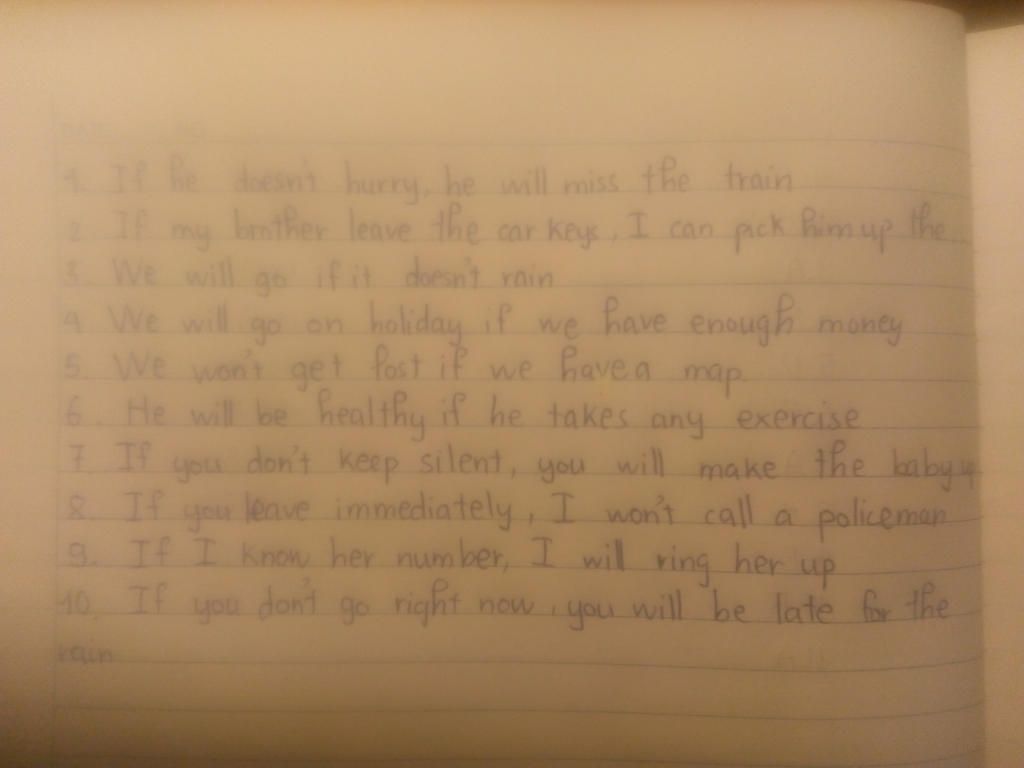 1. If he doesn't hurry, he will miss the train
2. If my brother leave the car keys, I can pick him up the
3. We will go if it doesn't rain
4 We will go on holiday if we have enough money
5. We won't get lost if we have a map.
6. He will be healthy if he takes any exercise
7 If you don't keep silent, you will make the baby up
8. If you leave immediately, I won't call a policeman
9. If I know her number, I will ring her up
10. If you don't go right now, you will be late for the
rain